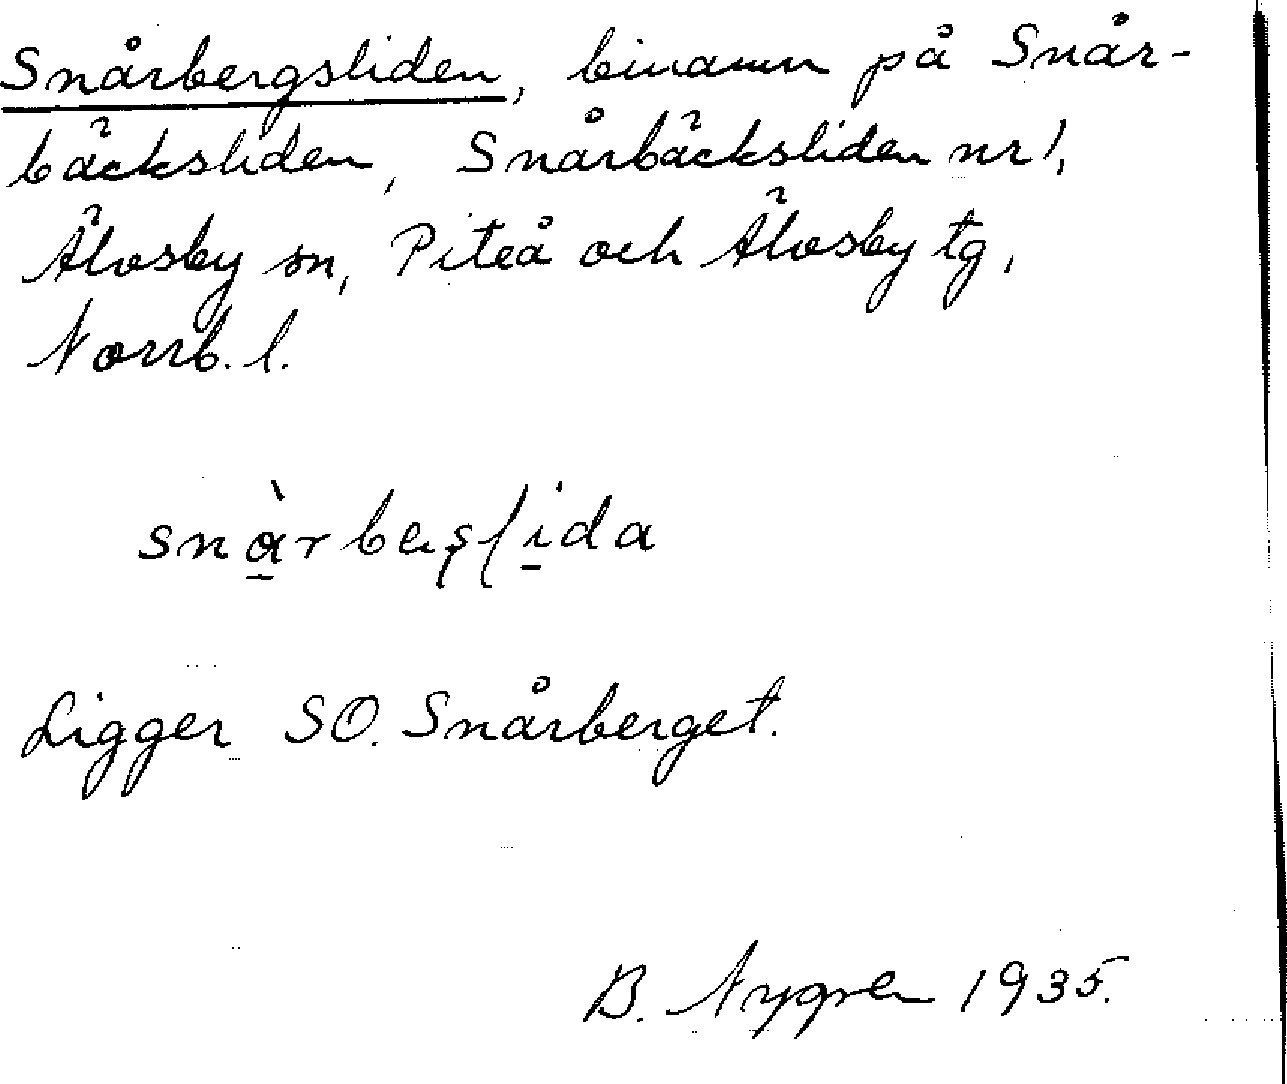 Snårbergsliden, binamn på Snår-
bäcksliden, Snårbäcksliden nr 1,
Älvsby sn, Piteå och Älvsby tg,
Norrb. l.
Ligger SO. Snårberget.
B. Nygren 1935.